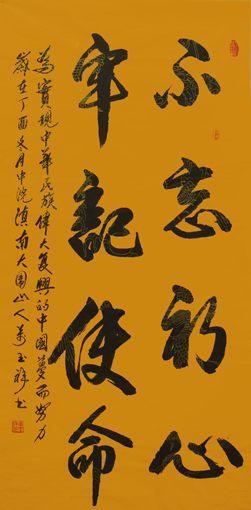 不忘初心
牢記使命
為實現中華民族偉大復興的中國夢而努力
歲在丁酉冬月中浣滇南大圍山人萬玉祥书